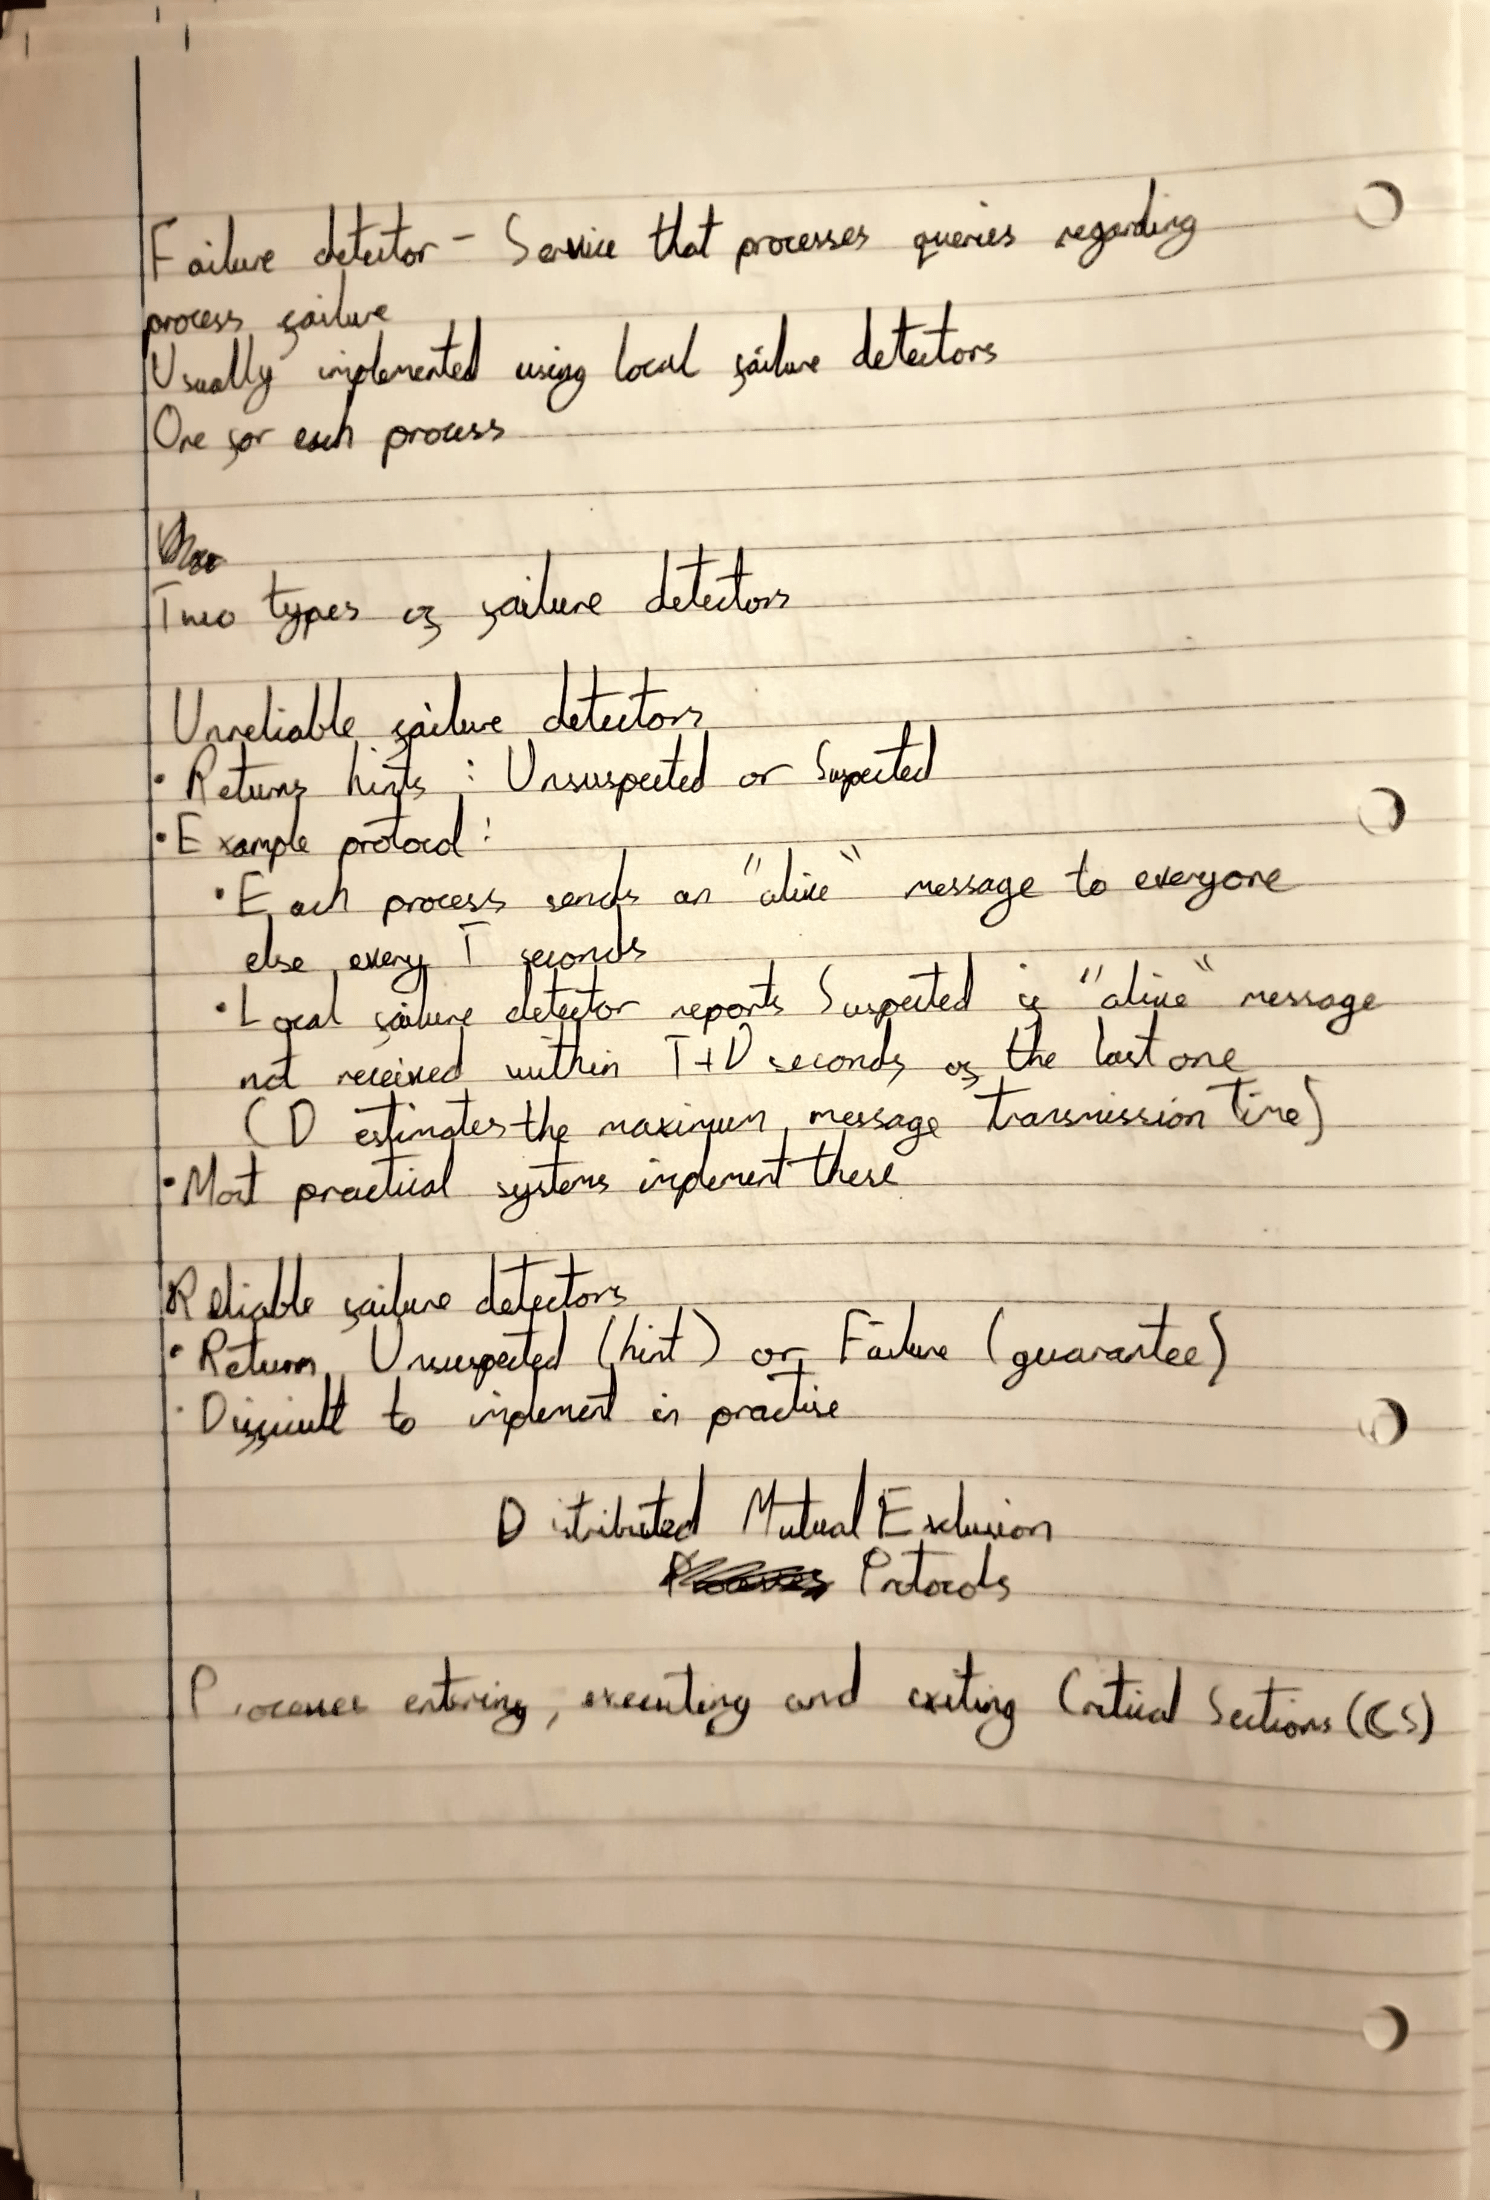 Failure detector - Service that processes queries regarding
process failure
Usually implemented using local failure detectors
One for each process
Two types of failure detectors
Unreliable failure detectors
• Returns hints : Unsuspected or Suspected
• Example protocol :
• Each process sends an "alive" message to everyone
else every T seconds
• Local failure detector reports Suspected if "alive" message
not received within T+D seconds of the last one
(D estimates the maximum message transmission time)
• Most practical systems implement these
Reliable failure detectors
• Return Unsuspected (hint) or Failure (guarantee)
• Difficult to implement in practise
Distributed Mutual Exclusion
Protocols
Processes entering, executing and exiting Critical Sections (CS)